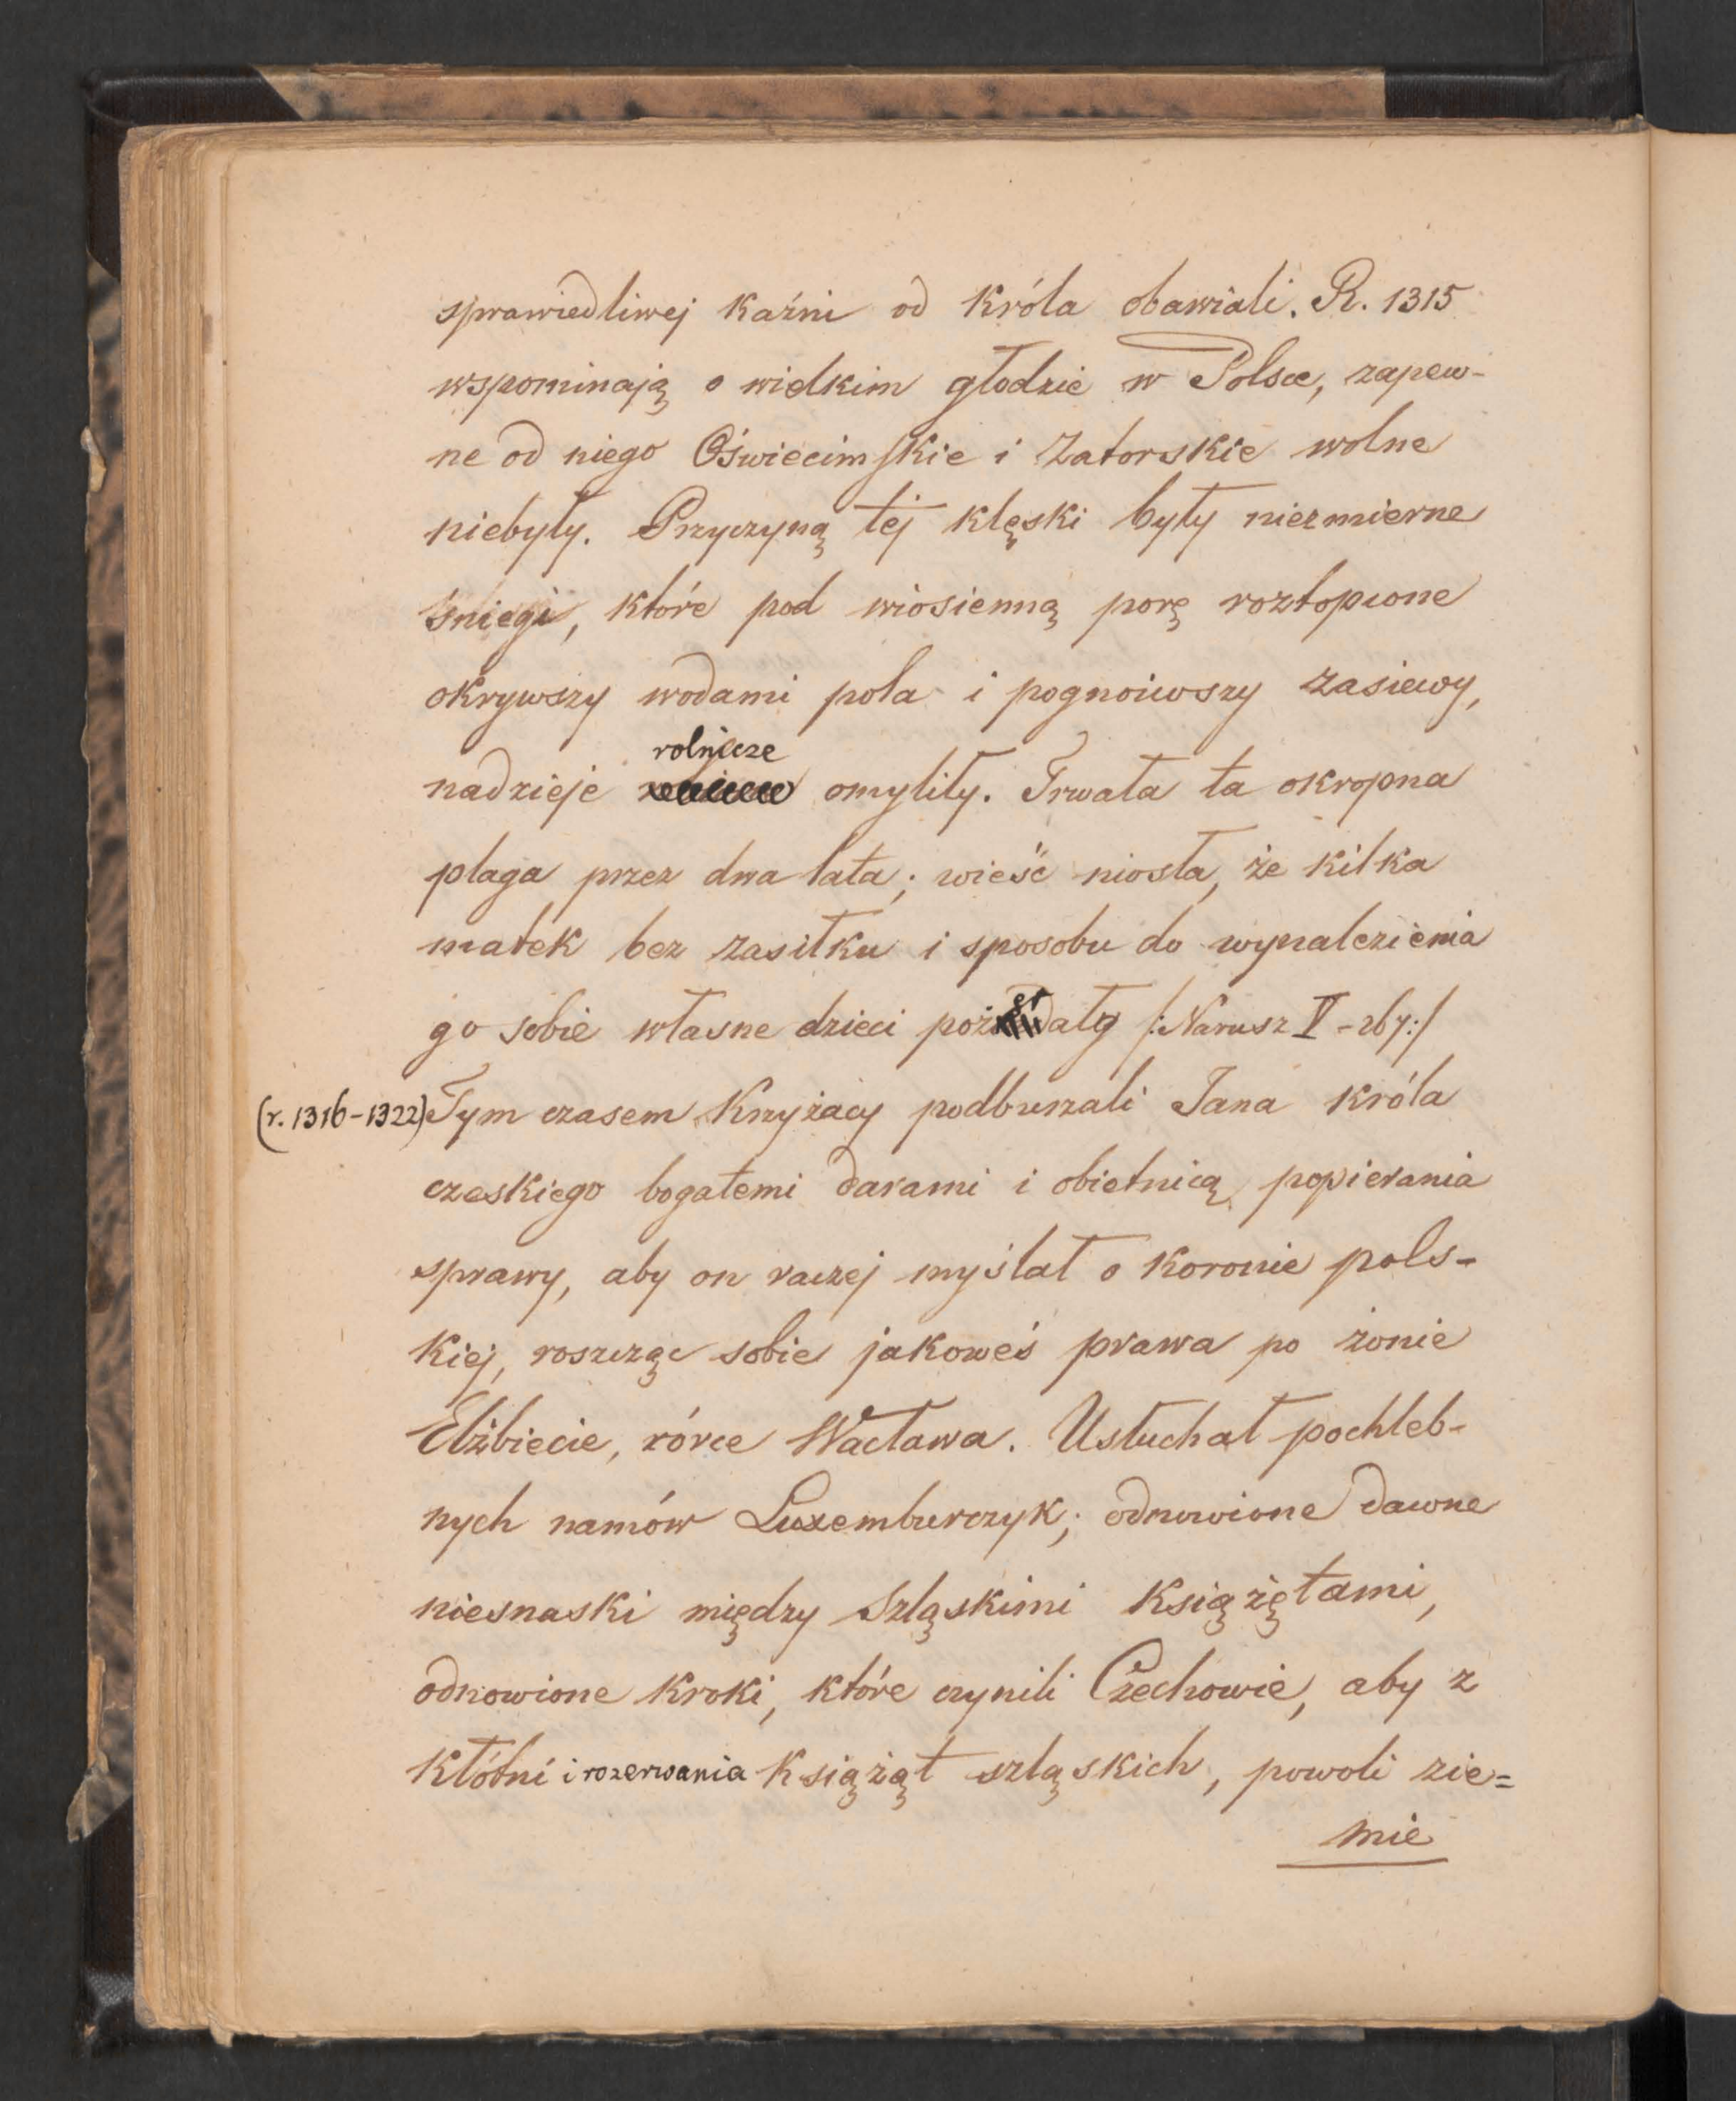 sprawiedliwej kaźni od króla obawiali. R. 1315
wspominają o wielkim głodzie w Polsce, zapew-
ne od niego Oświecimskie i Zatorskie wolne
niebyły. Przyczyną tej klęski były niezmierne
śniegi, które pod wiosienną porę roztopione
okrywszy wodami pola i pognoiwszy zasiewy,
rolnicze
nadzieje omyliły. Trwała ta okropna
plaga przez dwa lata; wieść niosła, że kilka
matek bez zasiłku i sposobu do wynalezienia
go sobie własne dzieci pożerały /:Narusz V - 267:/
(r. 1316-1322) Tym czasem Krzyżacy podburzali Jana króla
czeskiego bogatemi darami i obietnicą popierania
sprawy, aby on raczej myślał o koronie pols-
kiej, roszcząc sobie jakoweś prawa po żonie
Elżbiecie, córce Wacława. Usłuchał pochleb-
nych namów Luxemburczyk; odnowione dawne
niesnaski między szląskimi książętami,
odnowione kroki, które czynili Czechowie, aby z
kłótni i rozerwania książąt szląskich, powoli zie=
mie